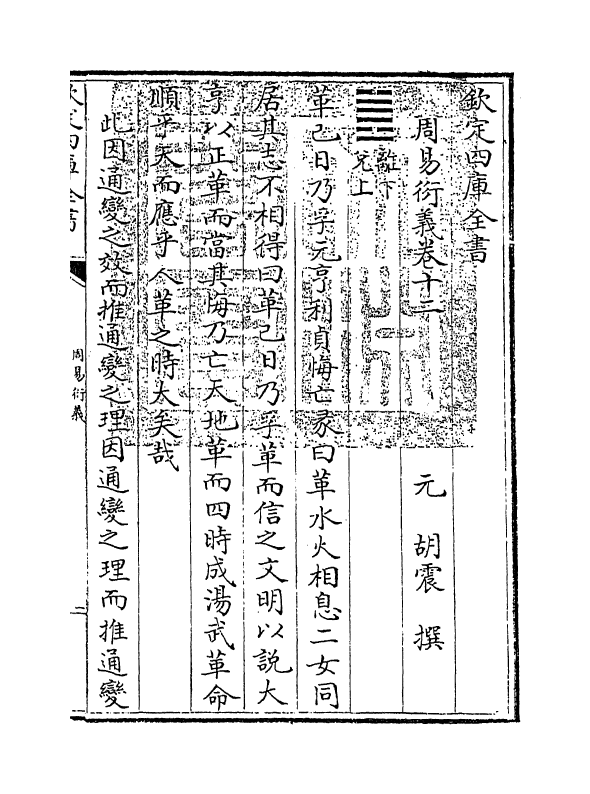 欽定四庫全書
周易衍義卷十二
元 胡震 撰
離下
兌上
革己日乃孚元亨利貞悔亡彖曰革水火相息二女同
居其志不相得曰革己日乃孚革而信之文明以說大
亨以正革而當其悔乃亡天地革而四時成湯武革命
順乎天而應乎人革之時大矣哉
此因通變之效而推通變之理因通變之理而推通變
欽定四庫全書
周易衍義